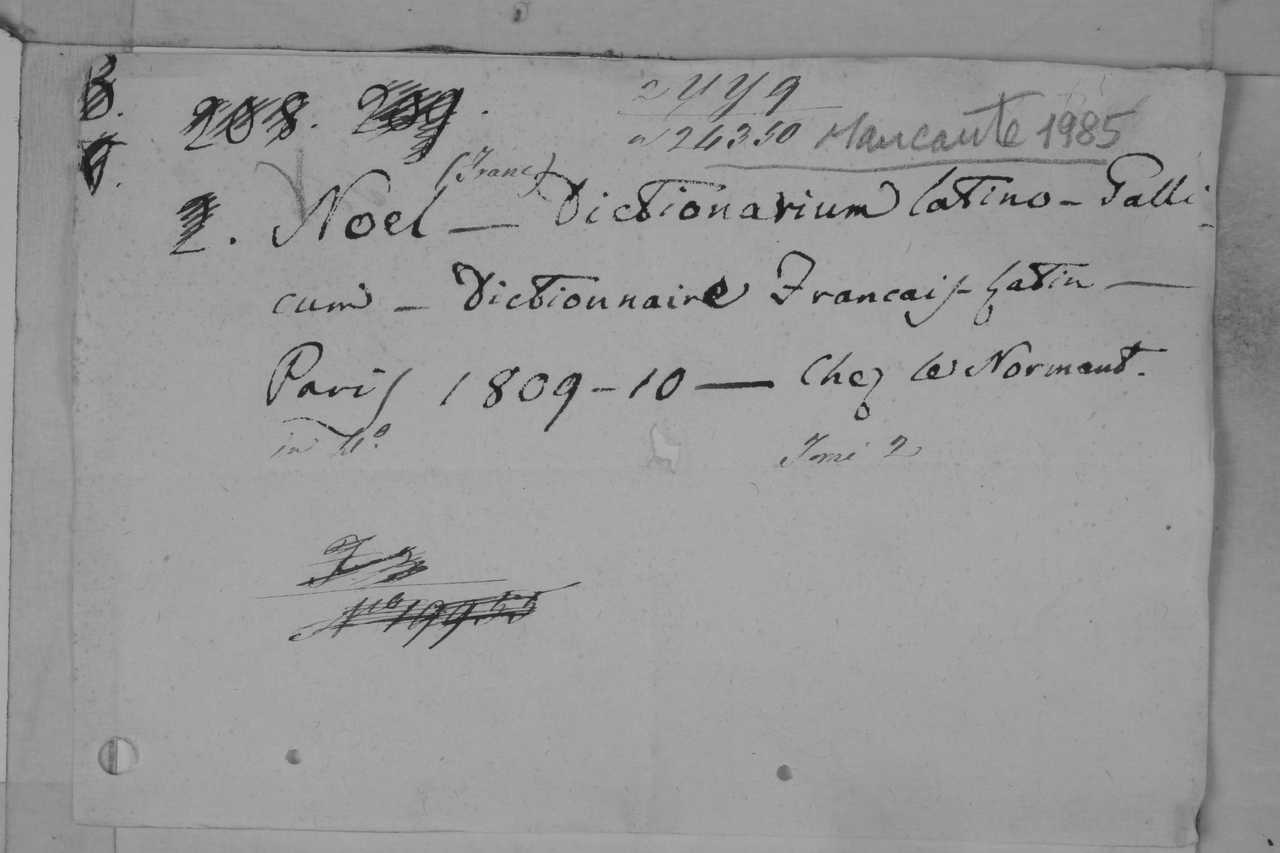 B. 208. 209.
n 24350 Mancante 1985
9.
(Franc.)
2. Noel — Dictionarium latino - Galli-
cum — Dictionnaire Francais-Latin —
Paris 1809-10 — Chez le Normant.
in 4.º Tomi 2
N.º 19955